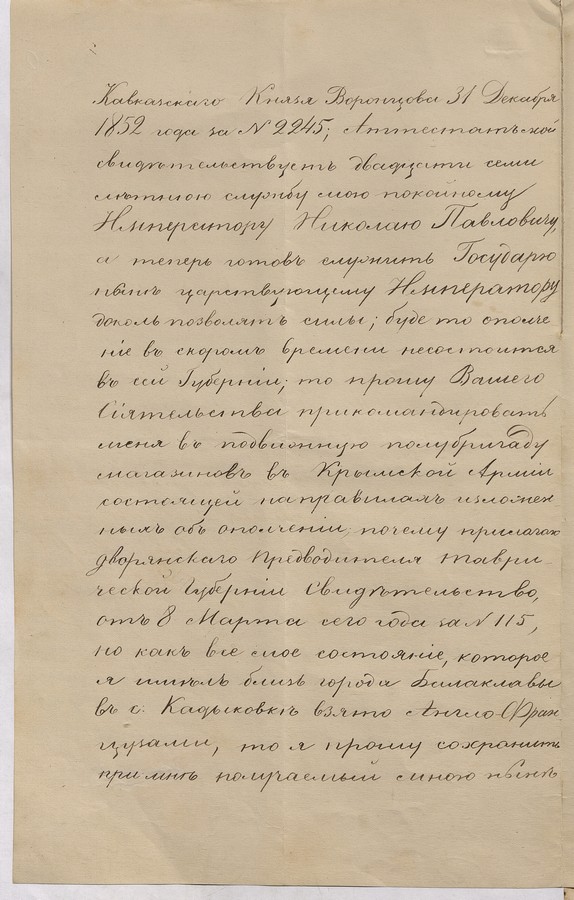 Кавказскаго Князя Воронцова 31 Декабря
1852 года за N 2245; Аттестатъ мой
свидѣтельствуетъ двадцати семи
лѣтнюю службу мою покойному
Императору Николаю Павловичу,
а теперь готовъ служить Государю
нынѣ царствующему Императору
доколь позволятъ силы; буде то ополче
ніе въ скоромъ времени несостоится
въ сей Губерніи; то прошу Вашего
Сіятельства прикомандировать
меня въ подвижную полубригаду
магазиновъ въ Крымской Арміи
состоящей на правилахъ изложен
ныхъ объ ополченіи, почему прилагаю
дворянскаго Предводителя Таври-
ческой Губерніи Свидѣтельство,
отъ 8 Марта сего года за N 115,
но какъ все мое состояніе, которое
я имѣлъ близъ города Балаклавы
въ с: Кадыковкѣ взято Англо-Фран
цузами, то я прошу сохранить
при мнѣ получаемый мною нынѣ